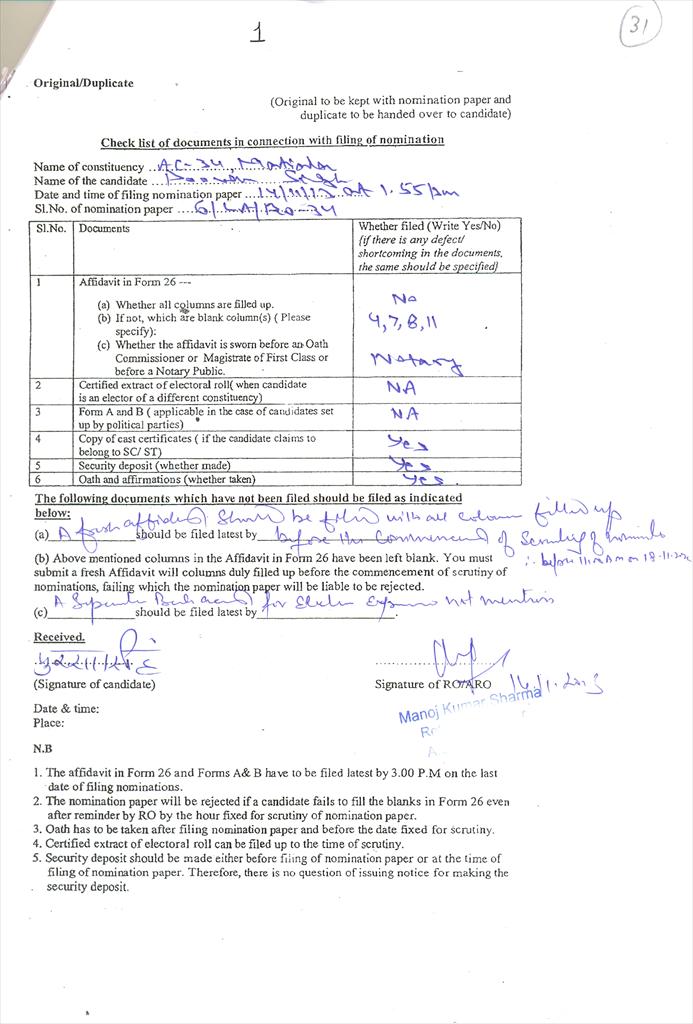 31
1
Original/Duplicate
(Original to be kept with nomination paper and
duplicate to be handed over to candidate)
Check list of documents in connection with filing of nomination
Name of constituency ...AC-34,
Name of the candidate ... Singh
Date and time of filing nomination paper ...14/11/13 at 1.55 pm
Sl.No. of nomination paper ....6/LA/Ro-34
Sl.No. Documents Whether filed (Write Yes/No)
(if there is any defect/
shortcoming in the documents,
the same should be specified)
1 Affidavit in Form 26 ---
(a) Whether all columns are filled up. No
(b) If not, which are blank column(s) ( Please 4,7,8,11
specify):
(c) Whether the affidavit is sworn before an Oath
Commissioner or Magistrate of First Class or Notary
before a Notary Public.
2 Certified extract of electoral roll( when candidate NA
is an elector of a different constituency)
3 Form A and B ( applicable in the case of candidates set NA
up by political parties)
4 Copy of cast certificates ( if the candidate claims to Yes
belong to SC/ ST)
5 Security deposit (whether made) Yes
6 Oath and affirmations (whether taken) Yes
The following documents which have not been filed should be filed as indicated
below:
A fresh affidavit should be filed with all column filled up
(a) should be filed latest by before the Commencement of Scrutiny of
before 11:00 AM on 18-11-
(b) Above mentioned columns in the Affidavit in Form 26 have been left blank. You must
submit a fresh Affidavit will columns duly filled up before the commencement of scrutiny of
nominations, failing which the nomination paper will be liable to be rejected.
A Separate Bank for Election not
(c) should be filed latest by .
Received.
(Signature of candidate)
Signature of RO/ARO
Manoj Kumar Sharma
Date & time:
Place:
N.B
1. The affidavit in Form 26 and Forms A& B have to be filed latest by 3.00 P.M on the last
date of filing nominations.
2. The nomination paper will be rejected if a candidate fails to fill the blanks in Form 26 even
after reminder by RO by the hour fixed for scrutiny of nomination paper.
3. Oath has to be taken after filing nomination paper and before the date fixed for scrutiny.
4. Certified extract of electoral roll can be filed up to the time of scrutiny.
5. Security deposit should be made either before filing of nomination paper or at the time of
filing of nomination paper. Therefore, there is no question of issuing notice for making the
security deposit.